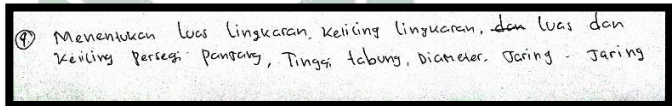 ④ Menentukan luas lingkaran, keliling lingkaran, dan luas dan
keliling persegi panjang, Tinggi tabung, Diameter. Jaring - Jaring